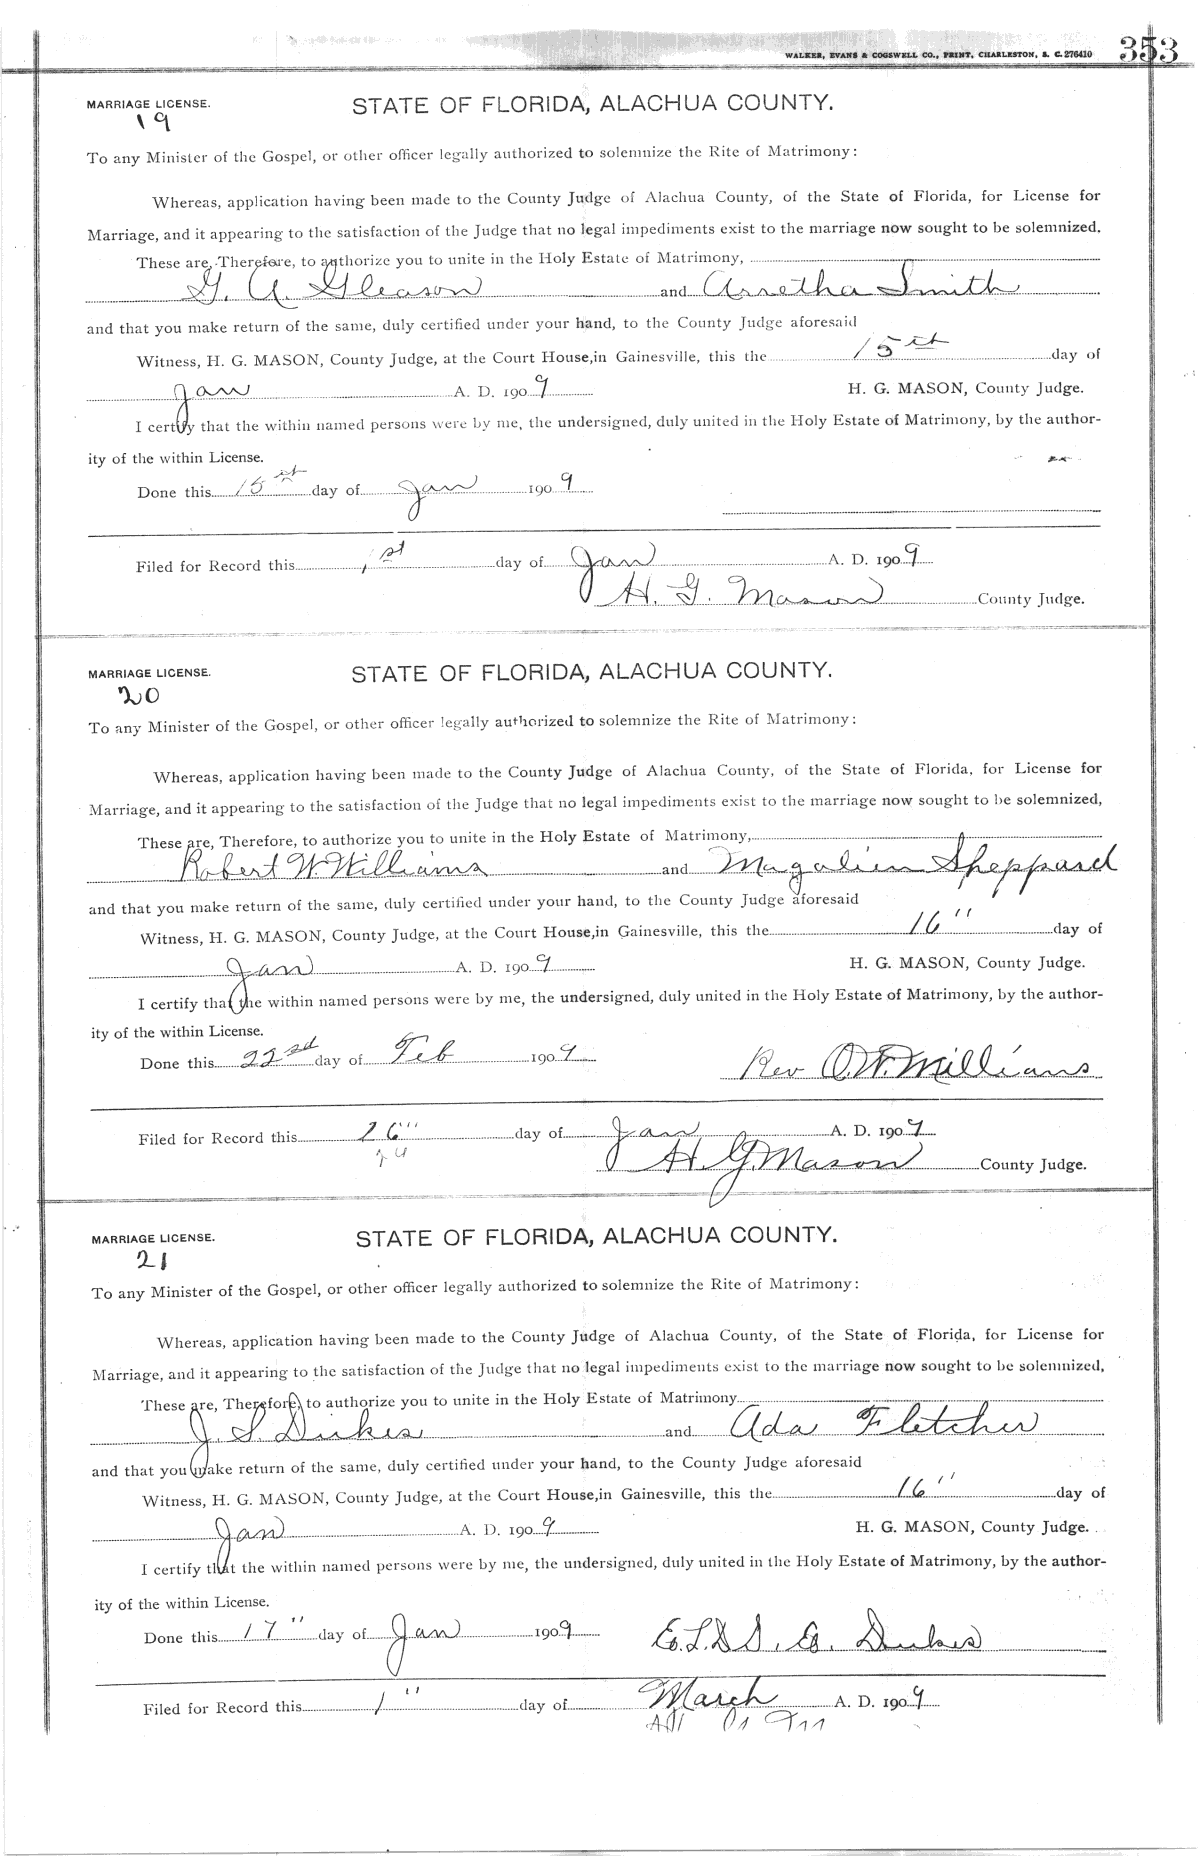 WALKER, EVANS & COGSWELL CO., PRINT, CHARLESTON, S. C. 276410 353
MARRIAGE LICENSE. STATE OF FLORIDA, ALACHUA COUNTY.
19
To any Minister of the Gospel, or other officer legally authorized to solemnize the Rite of Matrimony:
Whereas, application having been made to the County Judge of Alachua County, of the State of Florida, for License for
Marriage, and it appearing to the satisfaction of the Judge that no legal impediments exist to the marriage now sought to be solemnized,
These are, Therefore, to authorize you to unite in the Holy Estate of Matrimony,
G. A. Gleason and Arretha Smith
and that you make return of the same, duly certified under your hand, to the County Judge aforesaid
Witness, H. G. MASON, County Judge, at the Court House, in Gainesville, this the 15th day of
Jan A. D. 1909 H. G. MASON, County Judge.
I certify that the within named persons were by me, the undersigned, duly united in the Holy Estate of Matrimony, by the author-
ity of the within License.
Done this 15th day of Jan 1909
Filed for Record this 1st day of Jan A. D. 1909
H. G. Mason County Judge.
MARRIAGE LICENSE. STATE OF FLORIDA, ALACHUA COUNTY.
20
To any Minister of the Gospel, or other officer legally authorized to solemnize the Rite of Matrimony:
Whereas, application having been made to the County Judge of Alachua County, of the State of Florida, for License for
Marriage, and it appearing to the satisfaction of the Judge that no legal impediments exist to the marriage now sought to be solemnized,
These are, Therefore, to authorize you to unite in the Holy Estate of Matrimony,
Robert W. Williams and Magalien Sheppard
and that you make return of the same, duly certified under your hand, to the County Judge aforesaid
Witness, H. G. MASON, County Judge, at the Court House, in Gainesville, this the 16" day of
Jan A. D. 1909 H. G. MASON, County Judge.
I certify that the within named persons were by me, the undersigned, duly united in the Holy Estate of Matrimony, by the author-
ity of the within License.
Done this 22nd day of Feb 1909 Rev O. W. Williams
Filed for Record this 26" day of Jan A. D. 1909
H. G. Mason County Judge.
MARRIAGE LICENSE. STATE OF FLORIDA, ALACHUA COUNTY.
21
To any Minister of the Gospel, or other officer legally authorized to solemnize the Rite of Matrimony:
Whereas, application having been made to the County Judge of Alachua County, of the State of Florida, for License for
Marriage, and it appearing to the satisfaction of the Judge that no legal impediments exist to the marriage now sought to be solemnized,
These are, Therefore, to authorize you to unite in the Holy Estate of Matrimony
J. S. Dukes and Ada Fletcher
and that you make return of the same, duly certified under your hand, to the County Judge aforesaid
Witness, H. G. MASON, County Judge, at the Court House, in Gainesville, this the 16" day of
Jan A. D. 1909 H. G. MASON, County Judge.
I certify that the within named persons were by me, the undersigned, duly united in the Holy Estate of Matrimony, by the author-
ity of the within License.
Done this 17" day of Jan 1909 Dukes
Filed for Record this 1" day of March A. D. 1909